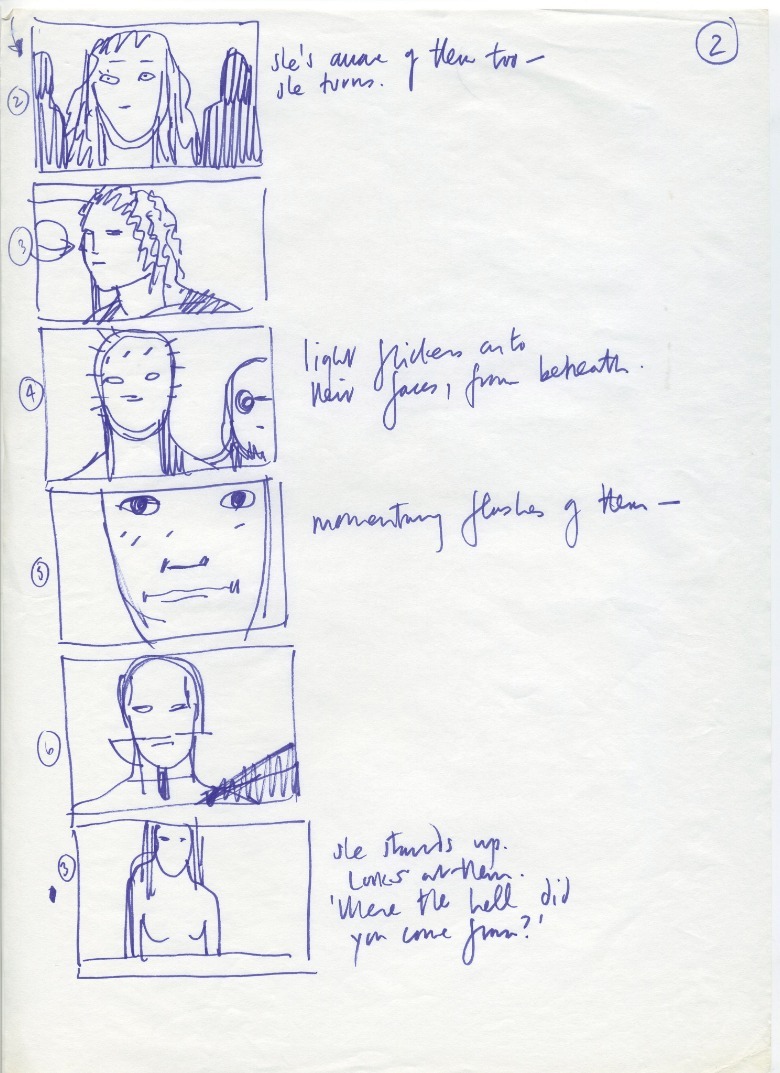 2
2
she's aware of them too —
she turns.
3
4
light flickers onto
their faces, from beneath.
5
momentary flashes of them —
6
3
she stands up.
Looks at them.
'Where the hell did
you come from?'